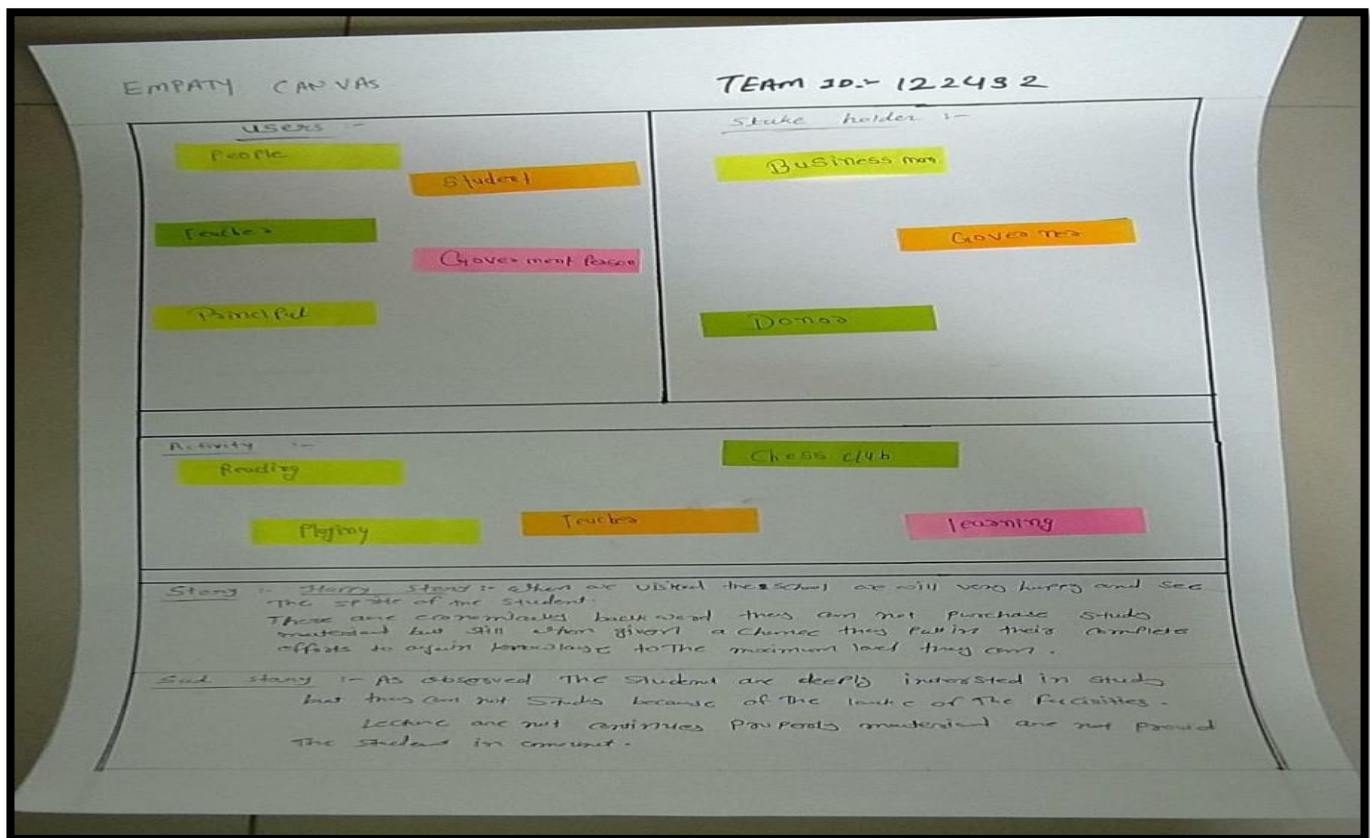 EMPATY CANVAS
TEAM ID:- 122432
users :-
People
Student
Teacher
Goverment Person
Principal
Stake holder :-
Business man
Governer
Donor
Activity :-
Reading
Chess club
Playing
Teacher
learning
Story :- Happy Story :- when we visited the school we will very happy and see
The of the student.
There are economically backword they can not purchase study
material but still when given a chance they put in their complete
efforts to again knowlage to The maximum they can.
Sad story :- As observed The Student are deeply intersted in study
but they can not Study because of The of The
Lecture are not continues material are not provid
The student in